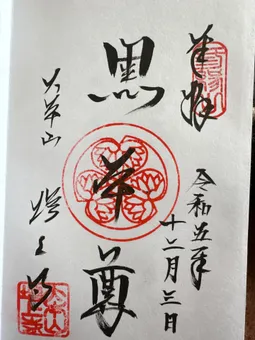 奉拝
令和五年
十二月三日
黒本尊
大本山 増上寺